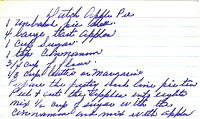 Dutch Apple Pie
1 unbaked pie shell
4 large tart apples
1 cup sugar
1 tsp cinnamon
3/4 cup flour
1/3 cup butter or margarine
Prepare the pastry and line pie tin
Peel & cut the apples into eights
mix 1/2 cup of sugar with the
cinnamon and mix with apples